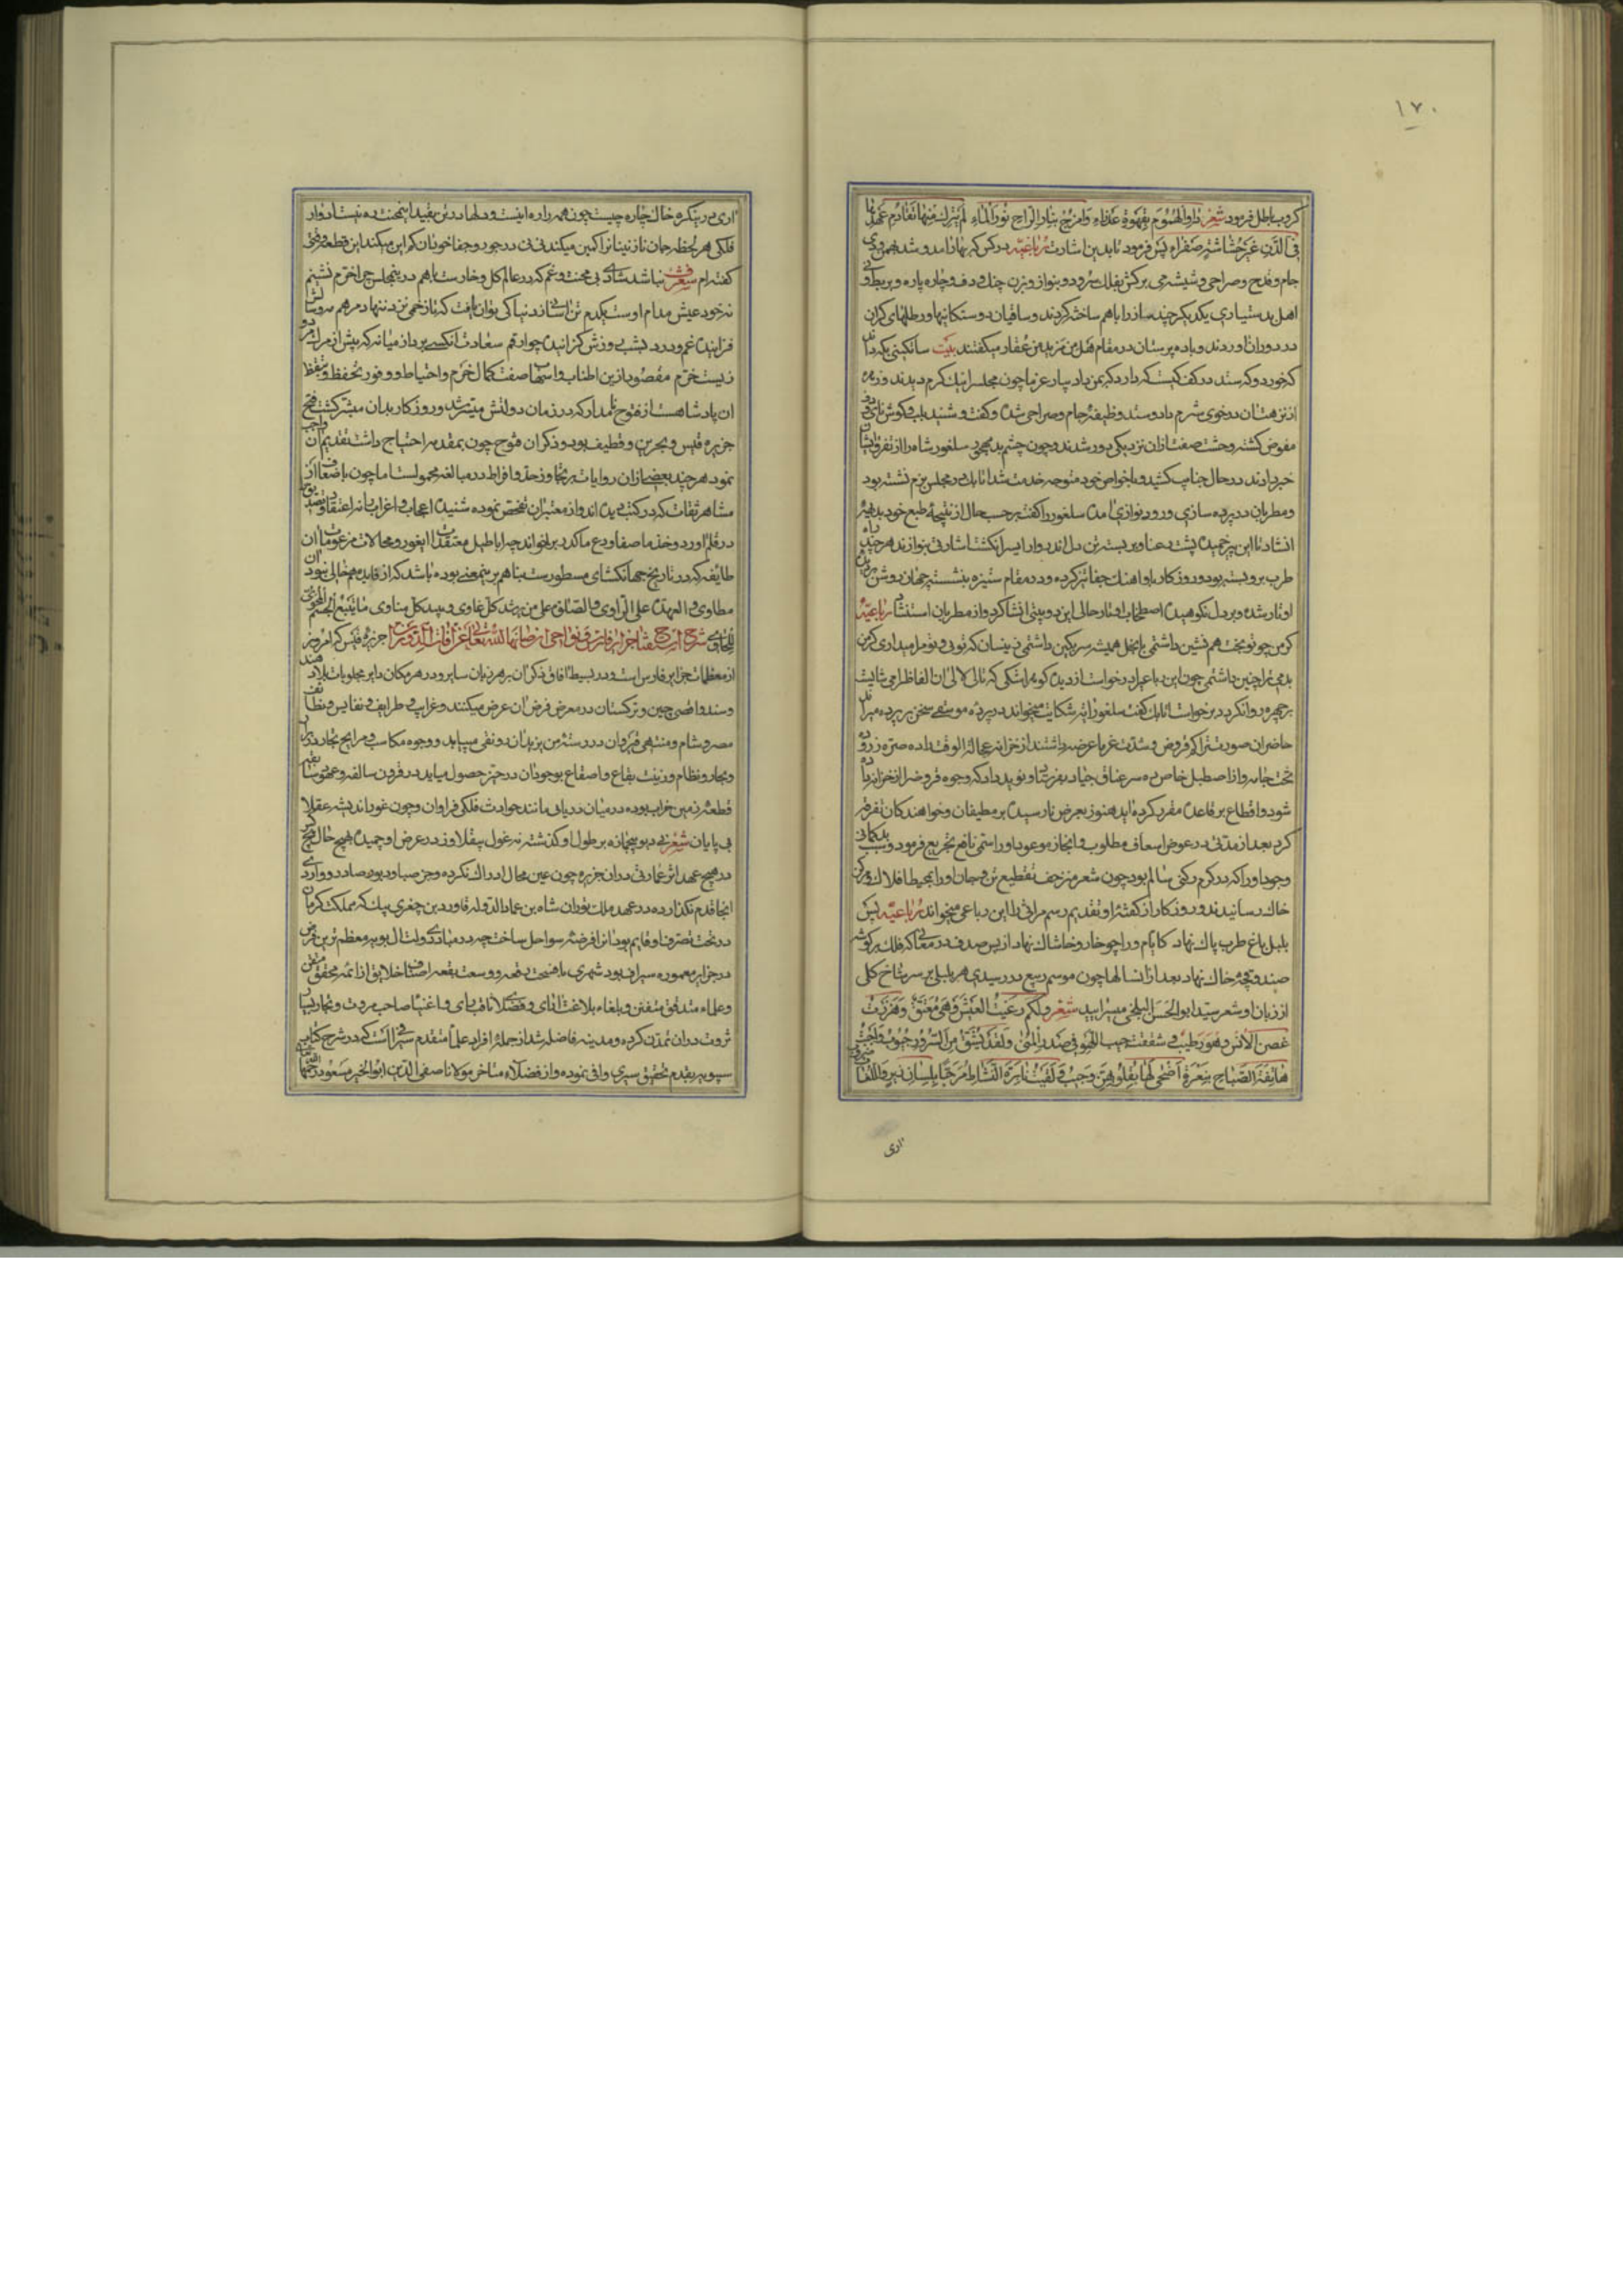 ١٧٠
کروب باطل فرمود شعر داو الهموم بقهوة عذراء وامزج بنار الراح نور الماء لم یترك منها تقادم عهدها
فی الدن غیر حشاشة صفراء پس فرمود تا بدین اشارت رباعیه درکش که بهار آمد و شد بهمن و دی
جام و قدح و صراحی و شیشه می برکش بفلك سرود و بنواز و بزن چنك و دف و چاره پاره و بربط و نی
اهل بدستیاری یکدیکر چند ساز را باهم ساخته کردند و ساقیان دوستکانیها و رطلهای کران
در دوران اوردند و باده پرستان در مقام هل من مزید من عقار میکفتند بیت
که خورد و که ستد در کف کیست که دارد که بمن باد بیار عزما چون مجلس اتابك کرم دیدند و زهره
از مستان در خوی شرم داد و ستد وظیفه جام و صراحی شده و کفت و شنید بلب و کوش نای و دف
مفوض کشته وحشت صفت ازان نزدیکی دور شدند و چون چشم بد مهجور سلغور شاه را از تفرق ایشان
خبر دادند در حال جنایب کشید و با خواص خود متوجه خدمت شد اتابك در مجلس بزم نشسته بود
و مطربان در پرده سازی و رود نوازی امده سلغور را کفت بر حسب حال از نتیجه طبع خود بدیهه
انشاد تا این پیر خمیده پشت رعنا و بربسته تن دل اندر وار ایسر انکشتا شارتی بنوازند هرچند راه
طرب برو بسته بود و روزکار با او اهنك جفا تیز کرده و در مقام ستیزه بنشسته جهان روشن
اوتار شده و بر دل نکوهیده اصطخاب اوتار حالی این دو بیتی انشا کرد و از مطربان استنشاد رباعیه
کر من چو تو بخت هم نشین داشتمی با نخل همیشه سر بکین داشتمی زینسان که تویی و تو مل میداری کر من
بدمی ترا چنین داشتمی چون این رباعی را درخواست از دیده کوهر اشکی که تالی لالی آن الفاظ امی شایست
بر چهره روانکرد و برخواست اتابك کفت سلغور را چه شکایت میخواند در پرده موسقی سخن بی پرده میراند
حاضران صورت تراکم قروض و شدت غرما عرضه داشتند از خزانه عجالة الوقت را ده صره زر و ده
تخت جامه و از اصطبل خاص ده سر عتاق جیاد بفرستاد و نوید داد که وجوه قروض از خزانه داده
شود و اقطاع بر قاعده مقرر کرده اید هنوز بعرض نارسیده بر مطیفان و خواهندکان تفرقه
کرد بعد از مدتی در عوض اسعاف مطلوب و انجاز موعود او را سمی ناقع تجریع فرمود و سبب بدکمانی
وجود او را که در کرم رکنی سالم بود چون شعر منزحف تقطیع تن و جان او را بمحیط افلاك و مرکز
خاك رسانیدند و روزکار از کفته او تقدیم رسم مراثی را این رباعی میخواند رباعیه پس
بلبل باغ طرب پاك نهاد کایام ورا چو خار و خاشاك نهاد از بس صدف در معانی که فلك بر کوشه
صندوقچه خاك نهاد بعد از ان سالها چون موسم ربیع در رسیدی هر بلبلی بر سر شاخ کلی
از زبان او شعر سید ابو الحسن البلخی میسرایید شعر ولکم رعیت العیش وهی معتق وهززت
غصن الانس وهو رطیب و شققت جیب اللهو فی صدر المنی ولقد یشق من السرور جیوب واجبت
هاتفة الصباح بنعرة اضحی لها بقلوبهن وجیب و لقیت ناسرة النشاط مرحبا بلسان نیر واللقاء
اری
اری درین کره خاك چاره چیست چون همه را ره اینست و دلها درین بقید ا پنجست ده نیست از وار
فلکی هر لحظه جان نازنینانرا کمین میکند نی نی در جور و جفا خود نان کم این میکند این قطعه وقتی
کفته ام شعر نباشد شادی بی محنت و غم که در عالم کل و خارست باهم درین مجلس چرا خرم نشینم
نه خود عیش مدام اوست یکدم تن اسانی زدنیا کی توان یافت که تا زخمی نزد ننهاد مرهم
فزاینده غم و درد شب و روزش کزاینده چو ارقم سعادت آنکسی برد از میانه که پیش از مرك
زیست خرم مقصود ازین اطناب و اسهاب صفت کمال حزم و احتیاط و وفور تحفظ و تیقظ
ان پادشاهست از فتوح نامدار که در زمان دولتش میسر شد و روزکار بدان مبشر کشت فتح
جزیره قیس و بحرین و قطیف بود و ذکر ان فتوح چون بمقدمه احتیاج داشت تقدیم ان واجب
نمود هرچند بعضی ازان روایات بر تجاوز حد و افراط در مبالغه محمولست اما چون باضعاف ان از
مشاهر ثقات که در کتب دیده اند و از معتبران تفحص نموده شنیده اعجاب و اغراب نه اعتقاد و تصدیق
در قلم اورد وخذ ما صفا ودع ما کدر برخواند چه اباطیل معتقدات ایغور و محالات مزعومات آن
طایفه که در تاریخ جهانکشای مسطورست بنا هم برین معنی بوده باشد که از فایده مع خالی نبود
مطاوی و العهدة علی الراوی والصلوة علی من یرشد کل غاوی و یبید کل مناوی ما یتبع النجم
شرح جزایر فارس و نواحی ارضانها لله تعالی عن آفات الدوران جزیره قیس که امروز
از معظمات جزایر فارس است و در بسیط افاق ذکر ان بر هر زبان سایر و در هر مکان دایر مجلوبات بلاد هند
و سند و اقصی چین و ترکستان در معرض فرض ان عرض میکنند و غرایب و طرایف و نفایس و نظایف
مصر و شام و منتهی قیروان در رسته من یزید ان رونقی مییابد و وجوه مکاسب و مرابح تجار دریا بار
و بحار و نظام و زینت بقاع و اصقاع بوجود ان در حیز حصول میاید در قرون سالفه و عهود سابقه
قطعه زمین خراب بوده در میان دریایی مانند حوادث فلکی فراوان و چون غور اندیشه عقلا
بی پایان شعر نی دیو بیجازه بر طول او کذشته نه غول بیقلاوز در عرض او چمیده بهیچ حال هیچکس
در هیچ عهد اثر عمارتی دران جزیره چون عین محال ادراك نکرده و جز صبا و دبور صادر و واردی
انجا قدم نکذارده در عهد ملك توران شاه بن عماد الدوله قاورد بن چغری بیك که مملکت کرمان
در تحت تصرف او قایم بود انرا فرضه سواحل ساخت چه در مبادی دولت ال بویه معظم ترین فرض
در جزایر معموره سیراف بود شهری بافسحت رقعه و وسعت بقعه اصناف خلایق از ائمه محقق متقن
وعلماء مدقق متفنن و بلغاء بلاغت انتمای و فضلا ناقب رای و اغنیا صاحب مروت و تجار بسیار
ثروت دران تمدن کرده و مدینه فاضله شد از جمله افراد علما متقدم سیرافی است که در شرح کتاب
سیبویه بقدم تحقیق سیری وافی نموده و از فضلاء متاخر مولانا صفی الدین ابو الخیر مسعود رحمهما الله